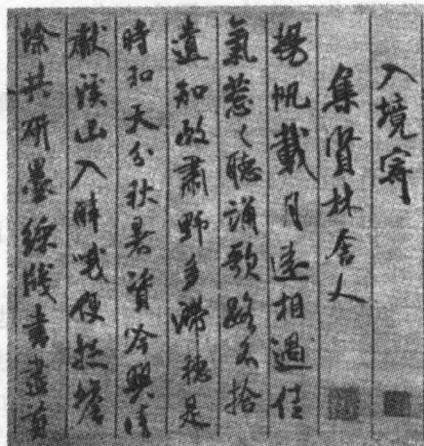 入境寄
集賢林舍人
揚帆載月遠相過佳
氣葱々聽誦歌路不拾
遺知政肅野多滯穗是
時和天分秋暑資吟興晴
獻溪山入醉哦便捉蟾
蜍共研墨綵牋書盡剪